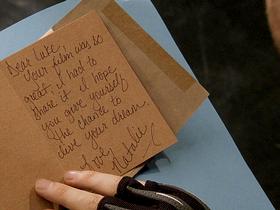 Dear Luke,
Your film was so
great, I had to
share it. I hope
you give yourself
the chance to
live your dream.
Love,
Natalie